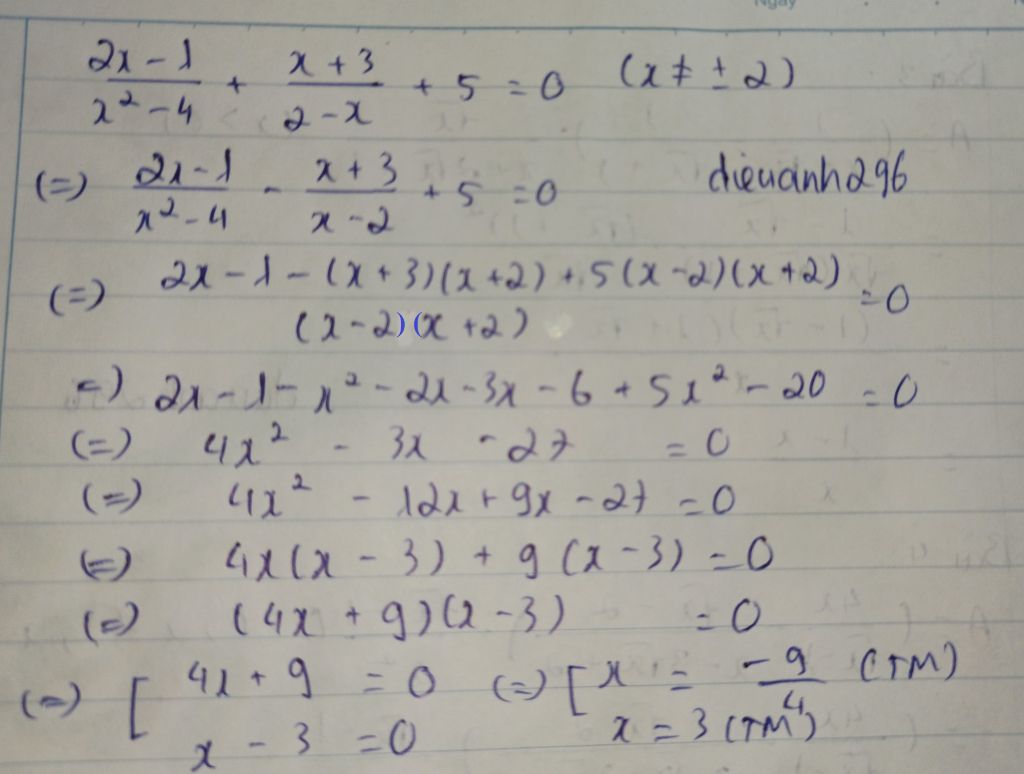 Ngày
(2x - 1)/(x² - 4) + (x + 3)/(2 - x) + 5 = 0 (x ≠ ± 2)
(=) (2x - 1)/(x² - 4) - (x + 3)/(x - 2) + 5 = 0 dieuanh296
(=) (2x - 1 - (x + 3)(x + 2) + 5(x - 2)(x + 2))/((x - 2)(x + 2)) = 0
=) 2x - 1 - x² - 2x - 3x - 6 + 5x² - 20 = 0
(=) 4x² - 3x - 27 = 0
(=) 4x² - 12x + 9x - 27 = 0
(=) 4x(x - 3) + 9(x - 3) = 0
(=) (4x + 9)(x - 3) = 0
(=) [ 4x + 9 = 0 (=) [ x = -9/4 (TM)
x - 3 = 0 x = 3 (TM)